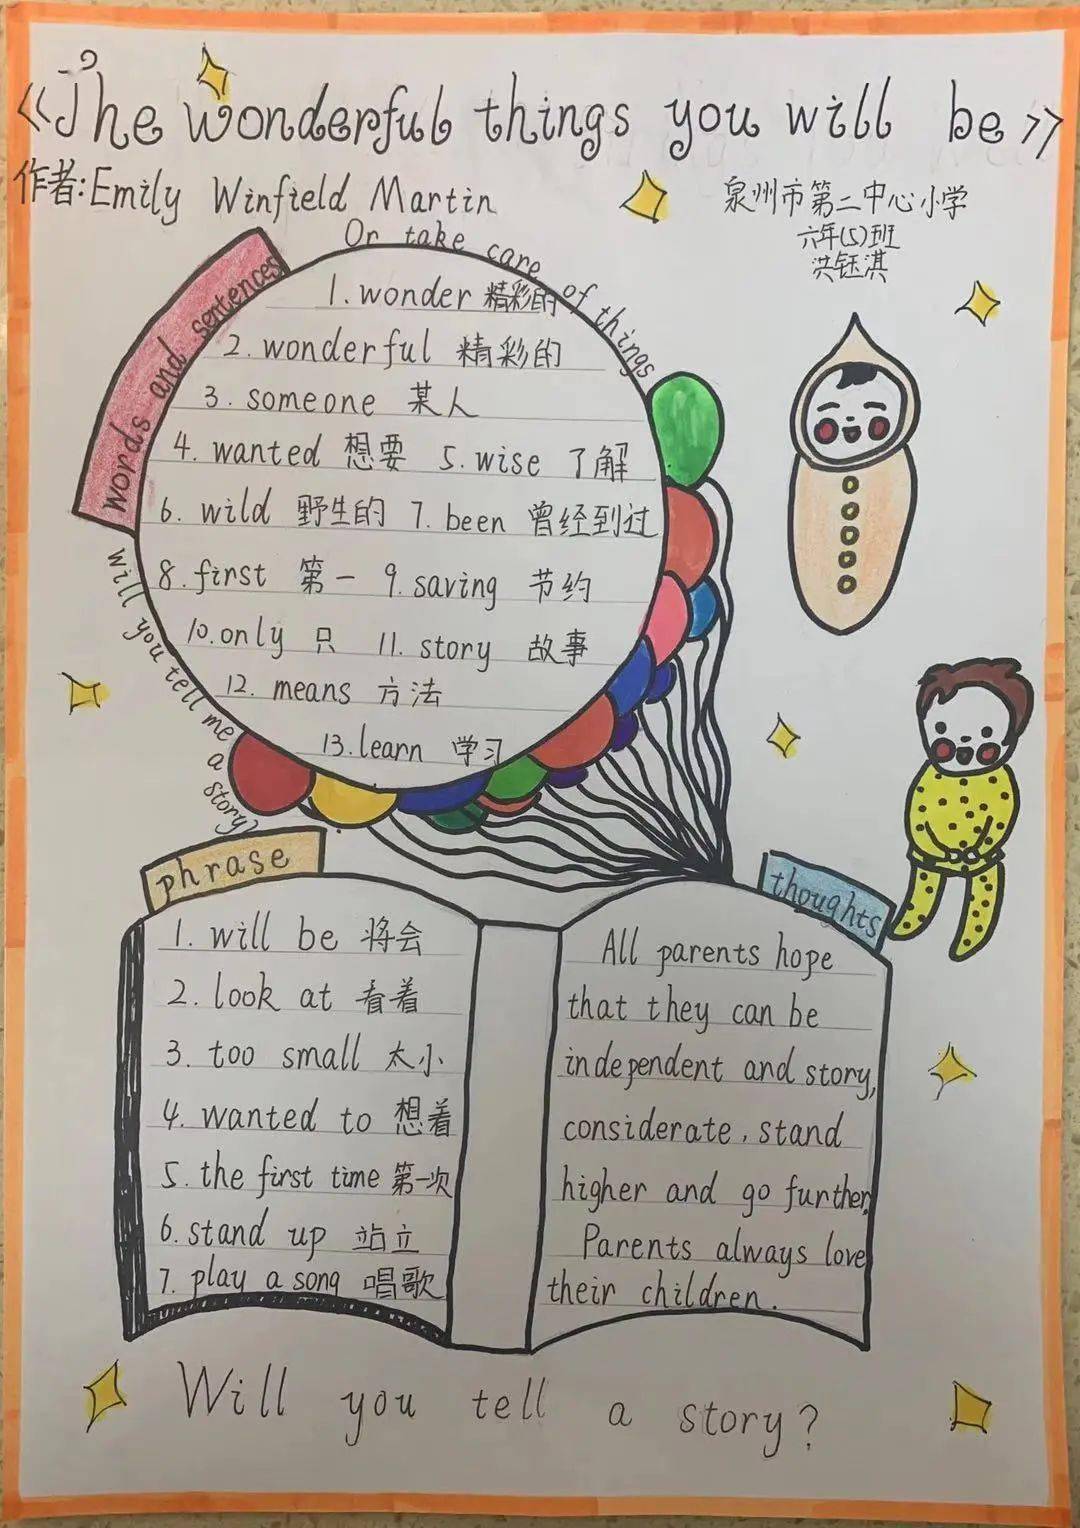 《The wonderful things you will be》
作者:Emily Winfield Martin
泉州市第二中心小学
六年(5)班
洪钰淇
Or take care of things
words and sentences
1. wonder 精彩的
2. wonderful 精彩的
3. someone 某人
4. wanted 想要 5. wise 了解
6. wild 野生的 7. been 曾经到过
8. first 第一 9. saving 节约
10. only 只 11. story 故事
12. means 方法
13. learn 学习
Will you tell me a story?
phrase
1. will be 将会
2. look at 看着
3. too small 太小
4. wanted to 想着
5. the first time 第一次
6. stand up 站立
7. play a song 唱歌
thoughts
All parents hope
that they can be
independent and story,
considerate, stand
higher and go further.
Parents always love
their children.
Will you tell a story?